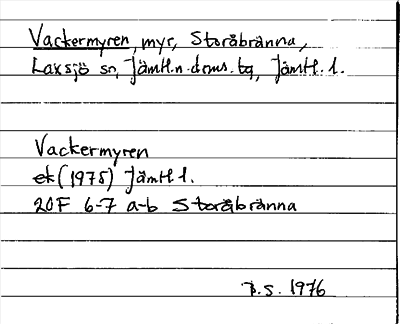 Vackermyren, myr, Storåbränna,
Laxsjö sn, Jämtl.n.doms.tg, Jämtl. l.
Vackermyren
ek (1975) Jämtl l.
20F 6-7 a-b Storåbränna
B.S. 1976